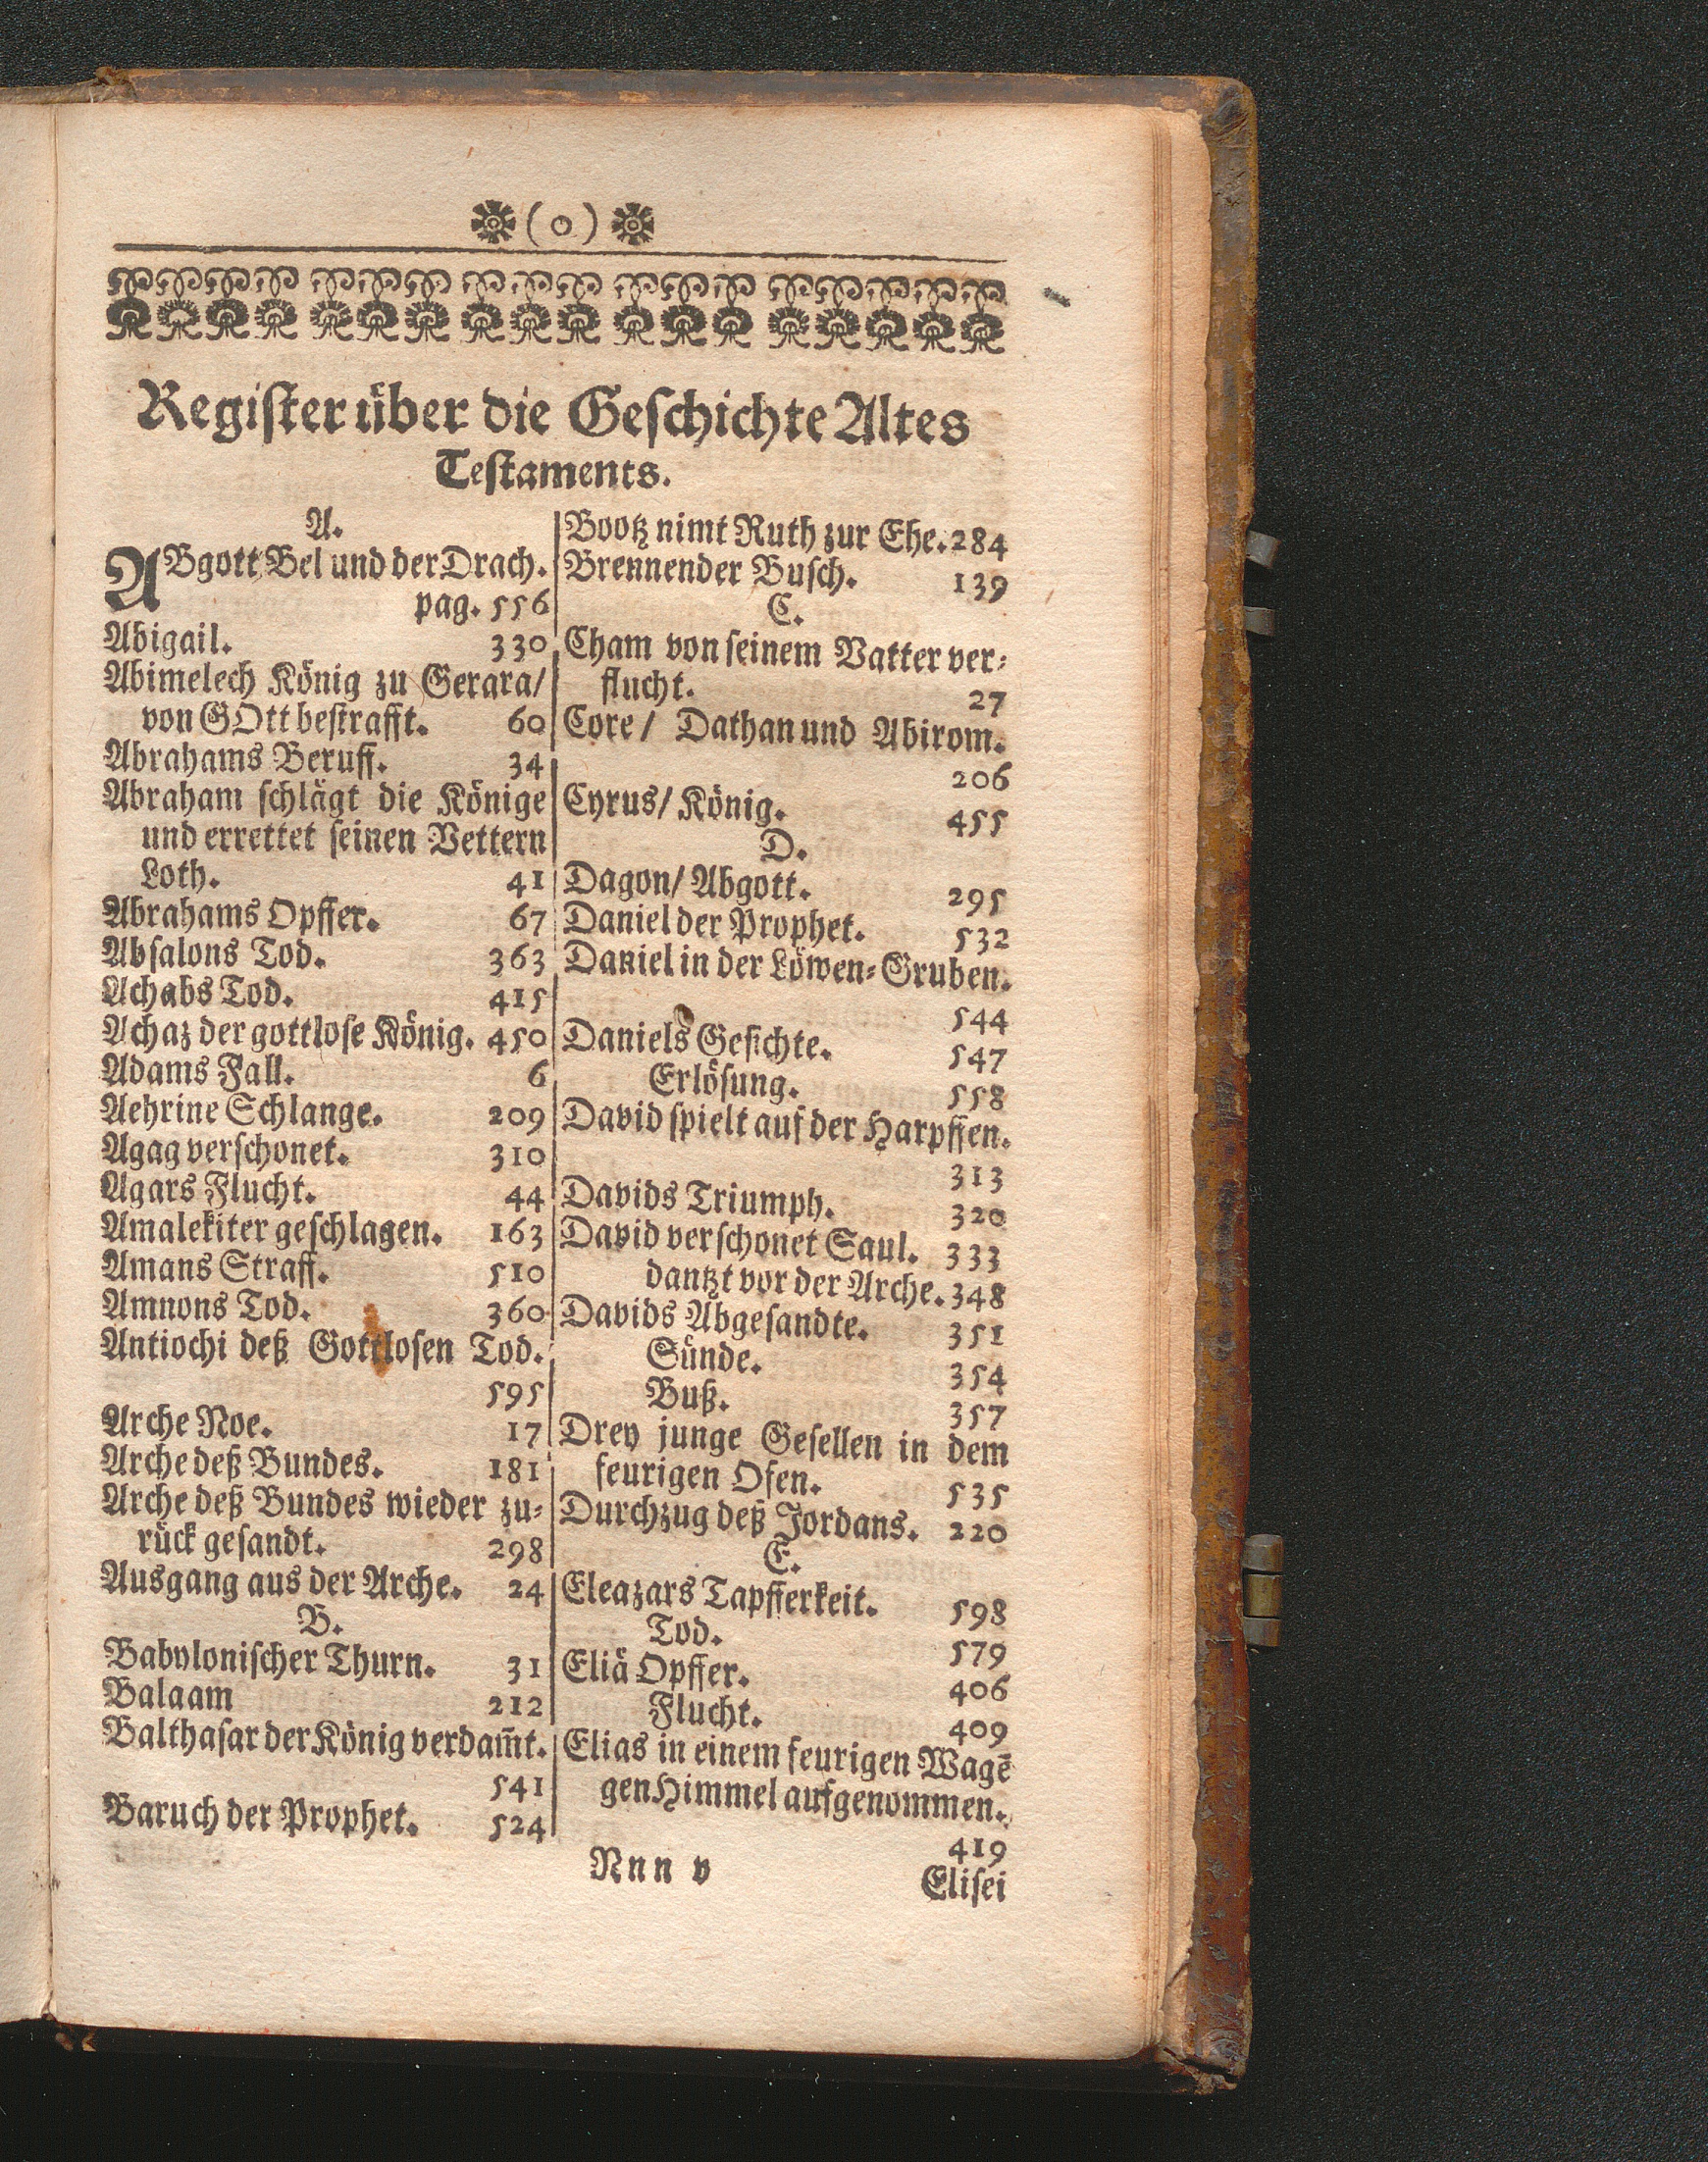 (o)
Register über die Geschichte Altes
Testaments.
A.
ABgott Bel und der Drach.
pag. 556
Abigail. 330
Abimelech König zu Gerara/
von GOtt bestrafft. 60
Abrahams Beruff. 34
Abraham schlägt die Könige
und errettet seinen Vettern
Loth. 41
Abrahams Opffer. 67
Absalons Tod. 363
Achabs Tod. 415
Achaz der gottlose König. 450
Adams Fall. 6
Aehrine Schlange. 209
Agag verschonet. 310
Agars Flucht. 44
Amalekiter geschlagen. 163
Amans Straff. 510
Amnons Tod. 360
Antiochi deß Gottlosen Tod.
595
Arche Noe. 17
Arche deß Bundes. 181
Arche deß Bundes wieder zu-
rück gesandt. 298
Ausgang aus der Arche. 24
B.
Babylonischer Thurn. 31
Balaam 212
Balthasar der König verdam̃t.
541
Baruch der Prophet. 524
Bootz nimt Ruth zur Ehe. 284
Brennender Busch. 139
C.
Cham von seinem Vatter ver-
flucht. 27
Core/ Dathan und Abirom.
206
Cyrus/ König. 455
D.
Dagon/ Abgott. 295
Daniel der Prophet. 532
Daniel in der Löwen-Gruben.
544
Daniels Gesichte. 547
Erlösung. 558
David spielt auf der Harpffen.
313
Davids Triumph. 320
David verschonet Saul. 333
dantzt vor der Arche. 348
Davids Abgesandte. 351
Sünde. 354
Buß. 357
Drey junge Gesellen in dem
feurigen Ofen. 535
Durchzug deß Jordans. 220
E.
Eleazars Tapfferkeit. 598
Tod. 579
Eliä Opffer. 406
Flucht. 409
Elias in einem feurigen Wagẽ
gen Himmel aufgenommen.
419
Nnn v
Elisei